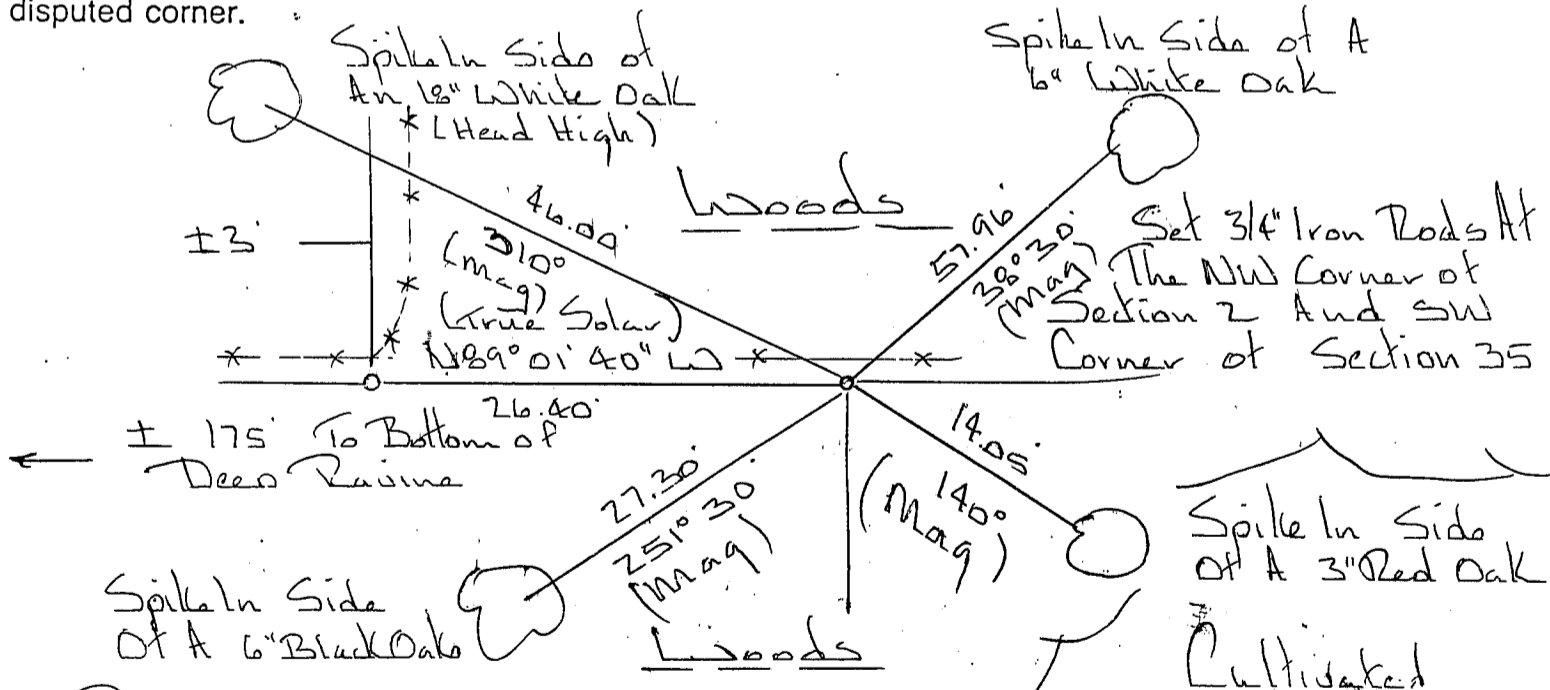 disputed corner.
Spike In Side of
An 18" White Oak
(Head High)
Spike In Side of A
6" White Oak
Woods
46.00'
310°
(Mag)
57.96'
38°30'
(Mag)
Set 3/4" Iron Rods At
The NW Corner of
Section 2 And SW
Corner of Section 35
±3'
(True Solar)
N89°01'40" W
26.40'
± 175' To Bottom of
Deep Ravine
27.30'
251°30'
(Mag)
14.05'
140°
(Mag)
Spike In Side
Of A 3" Red Oak
Spike In Side
Of A 6" Black Oak
Woods
Cultivated